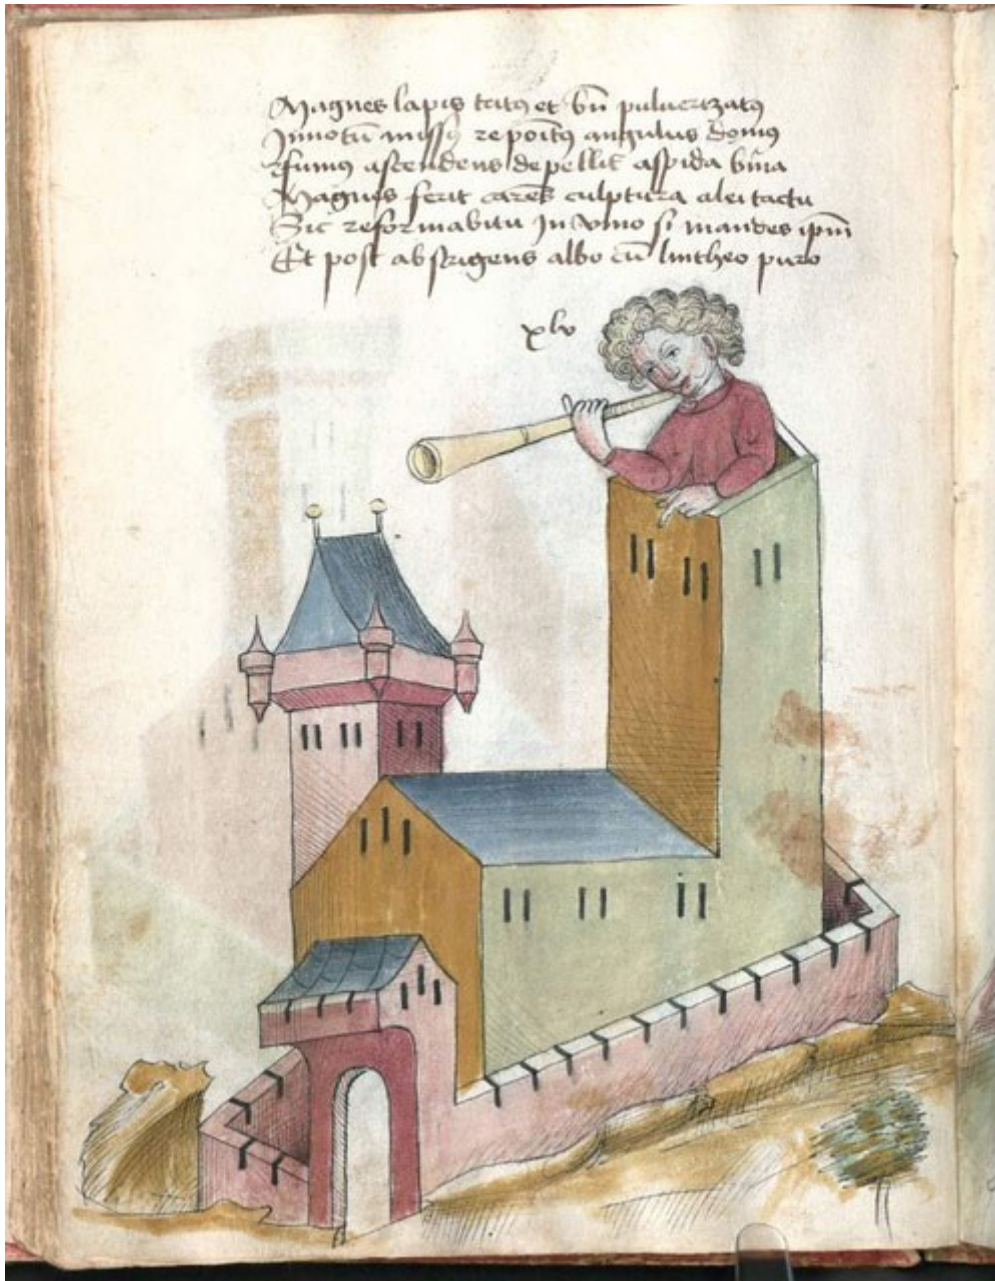 Magnes lapis tritꝰ et bn̄ puluerizatꝰ
missꝰ repōitꝰ angulus domꝰ
ffumꝰ ascendens depellit aspida bīna
Magnus ferit carēs culptura alei tactu
Sic reformabitu In vino si mandes ipm̄
Et post abstrigens albo cū lintheo puro
xlv